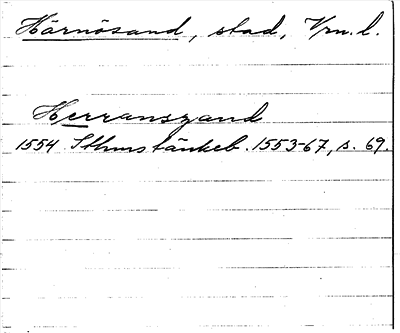 Härnösand, stad, Vrn.l.
Herranszand
1554 Sthms tänkeb. 1553-67, s. 69.